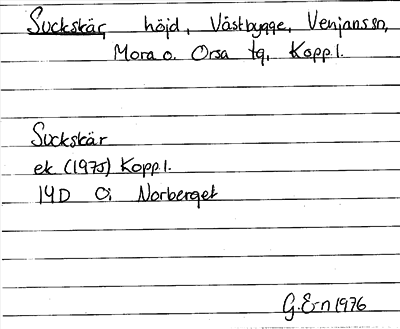 Suckskär, höjd, Västbygge, Venjans sn,
Mora o. Orsa tg, Kopp.l.
Suckskär
ek (1975) Kopp.l.
14D Öi Norberget
G. Ern 1976